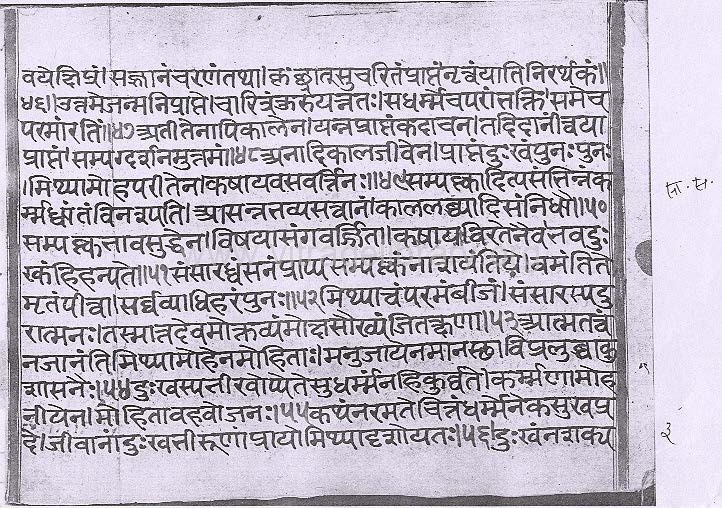 वयेत्क्षिप्रं। सज्ज्ञानंचरणंतथा। कृच्छ्रात्सुचरितंप्राप्तंनृत्वंयातिनिरर्थकं।
४६। उत्तमेजन्मनिप्राप्ते। चारित्रंकुरुयत्नतः। सधर्म्मेचपरांत्तक्तिं। समेच
परमांरतिं। ४७ अतीतेनापिकालेन। यन्नप्राप्तंकदाचन। तदिदानींत्वया
प्राप्तं। सम्पग्दर्शनमुत्तमां। ४८ अनादिकालजीवेन। प्राप्तंदुःखंपुनःपुनः
। मिथ्यामोहपरीतेन। कषायवसवर्त्तिनः। ४९ सम्पत्कादित्पसंत्तिन्नंक
र्म्मध्वांतंविनश्पति। आसन्नत्तव्यसत्वानां। काललब्ध्यादिसंनिधौ। ५०
सम्पत्क्वत्तावसुद्धेन। विषयासंगवर्ज्जितः। कषायविरतेनैवत्तवदुः
खंहिहन्पते। ५१ संसारध्वंसनंप्राप्य सम्पत्कंनाशयंतिये। वमंतिते
मृतंपीत्वा। सर्वव्याधिहरंपुनः। ५२ मिथ्यात्वंपरमंबीजं। संसारस्पदु
रात्मनः। तस्मात्तदेवमोक्तव्यंमोक्षसौख्यंजितक्षुणा। ५३ आत्मतत्वं
नजानंतिमिथ्यामोहेनमोहिताः। मनुजायेनमानस्छाविप्रलुब्धाकु
शासनैः। ५४ दुःखस्पत्तीरवोप्पेतेसुधर्म्मंनहिकुर्वते। कर्म्मणामोह
नीयेन। मोहितावहवोजनः। ५५ कथंनरमतेचित्तंधर्म्मेनेकसुखप्र
दे। जीवानांदुःखत्तीरूणांप्रायोमिथ्यादृशोयतः। ५६। दुःखंनशक्य
सा. स.
३